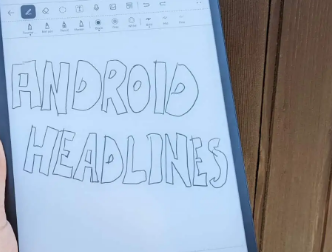 ANDROID
HEADLINES